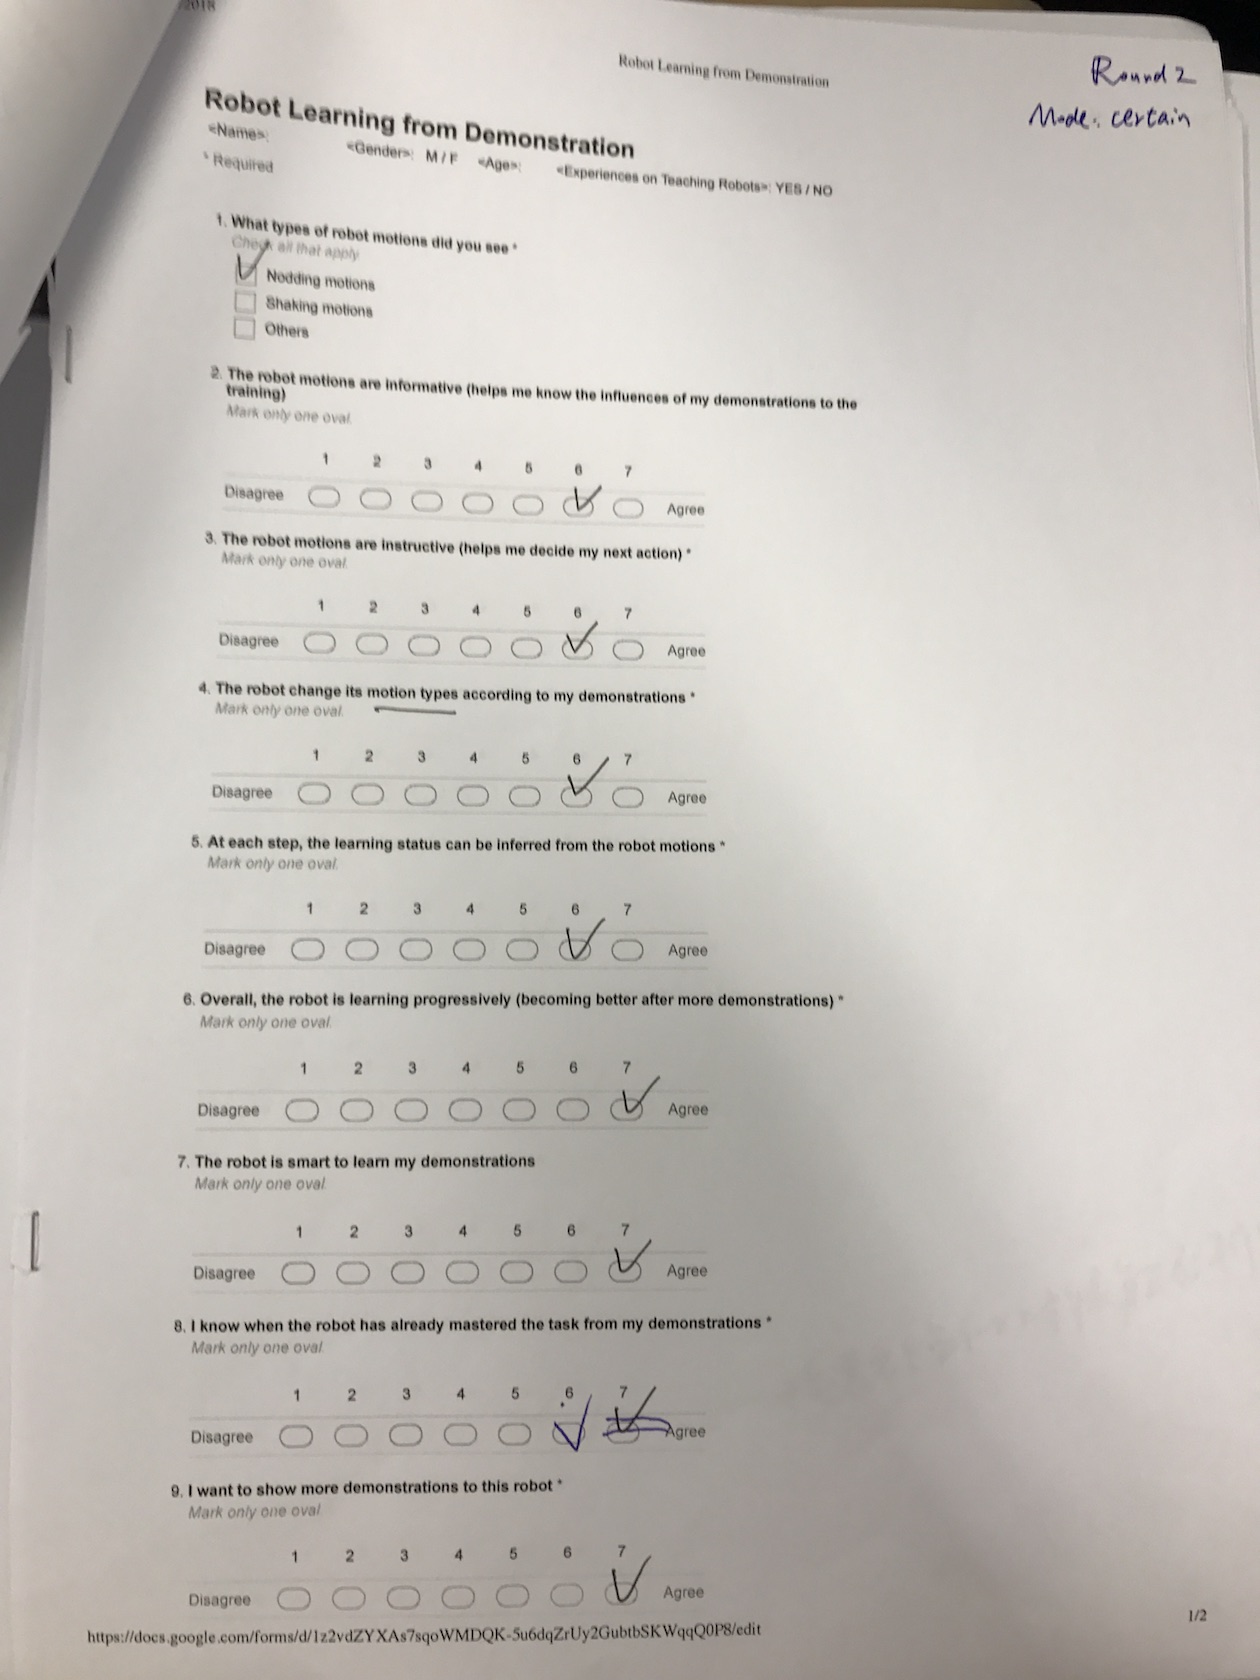 /2018
Robot Learning from Demonstration
Round 2
Mode: certain
Robot Learning from Demonstration
<Name>: <Gender>: M / F <Age>: <Experiences on Teaching Robots>: YES / NO
* Required
1. What types of robot motions did you see *
Check all that apply
Nodding motions
Shaking motions
Others
2. The robot motions are informative (helps me know the influences of my demonstrations to the
training)
Mark only one oval.
1 2 3 4 5 6 7
Disagree Agree
3. The robot motions are instructive (helps me decide my next action) *
Mark only one oval.
1 2 3 4 5 6 7
Disagree Agree
4. The robot change its motion types according to my demonstrations *
Mark only one oval.
1 2 3 4 5 6 7
Disagree Agree
5. At each step, the learning status can be inferred from the robot motions *
Mark only one oval.
1 2 3 4 5 6 7
Disagree Agree
6. Overall, the robot is learning progressively (becoming better after more demonstrations) *
Mark only one oval.
1 2 3 4 5 6 7
Disagree Agree
7. The robot is smart to learn my demonstrations
Mark only one oval.
1 2 3 4 5 6 7
Disagree Agree
8. I know when the robot has already mastered the task from my demonstrations *
Mark only one oval
1 2 3 4 5 6 7
Disagree Agree
9. I want to show more demonstrations to this robot *
Mark only one oval
1 2 3 4 5 6 7
Disagree Agree
https://docs.google.com/forms/d/1z2vdZYXAs7sqoWMDQK-5u6dqZrUy2GubtbSKWqqQ0P8/edit
1/2